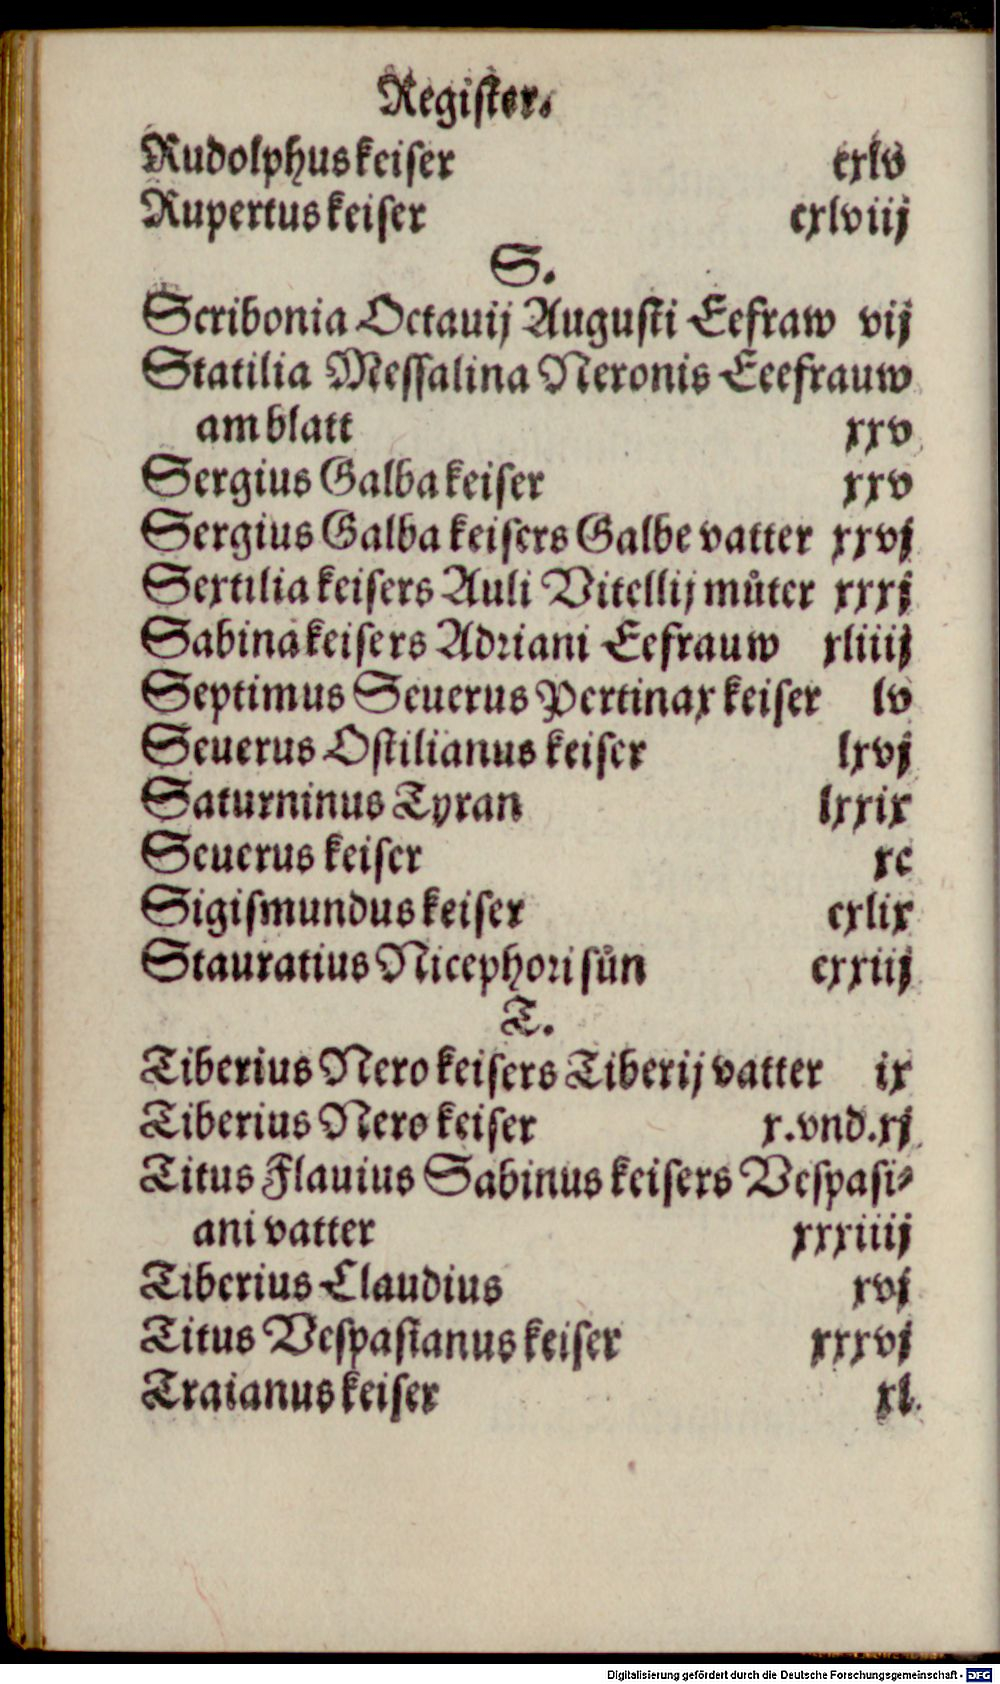 Register.
Rudolphus keiser cxlv
Rupertus keiser cxlviij
S.
Scribonia Octauij Augusti Eefraw vij
Statilia Messalina Neronis Eeefrauw
am blatt xxv
Sergius Galba keiser xxv
Sergius Galba keisers Galbe vatter xxvj
Sextilia keisers Auli Vitellij můter xxxj
Sabina keisers Adriani Eefrauw xliiij
Septimus Seuerus Pertinax keiser lv
Seuerus Ostilianus keiser lxvj
Saturninus Tyran lxxix
Seuerus keiser xc
Sigismundus keiser cxlix
Stauratius Nicephori sůn cxxiij
T.
Tiberius Nero keisers Tiberij vatter ix
Tiberius Nero keiser x.vnd.xj
Titus Flauius Sabinus keisers Vespasi⸗
ani vatter xxxiiij
Tiberius Claudius xvj
Titus Vespasianus keiser xxxvj
Traianus keiser xl.
Digitalisierung gefördert durch die Deutsche Forschungsgemeinschaft - DFG